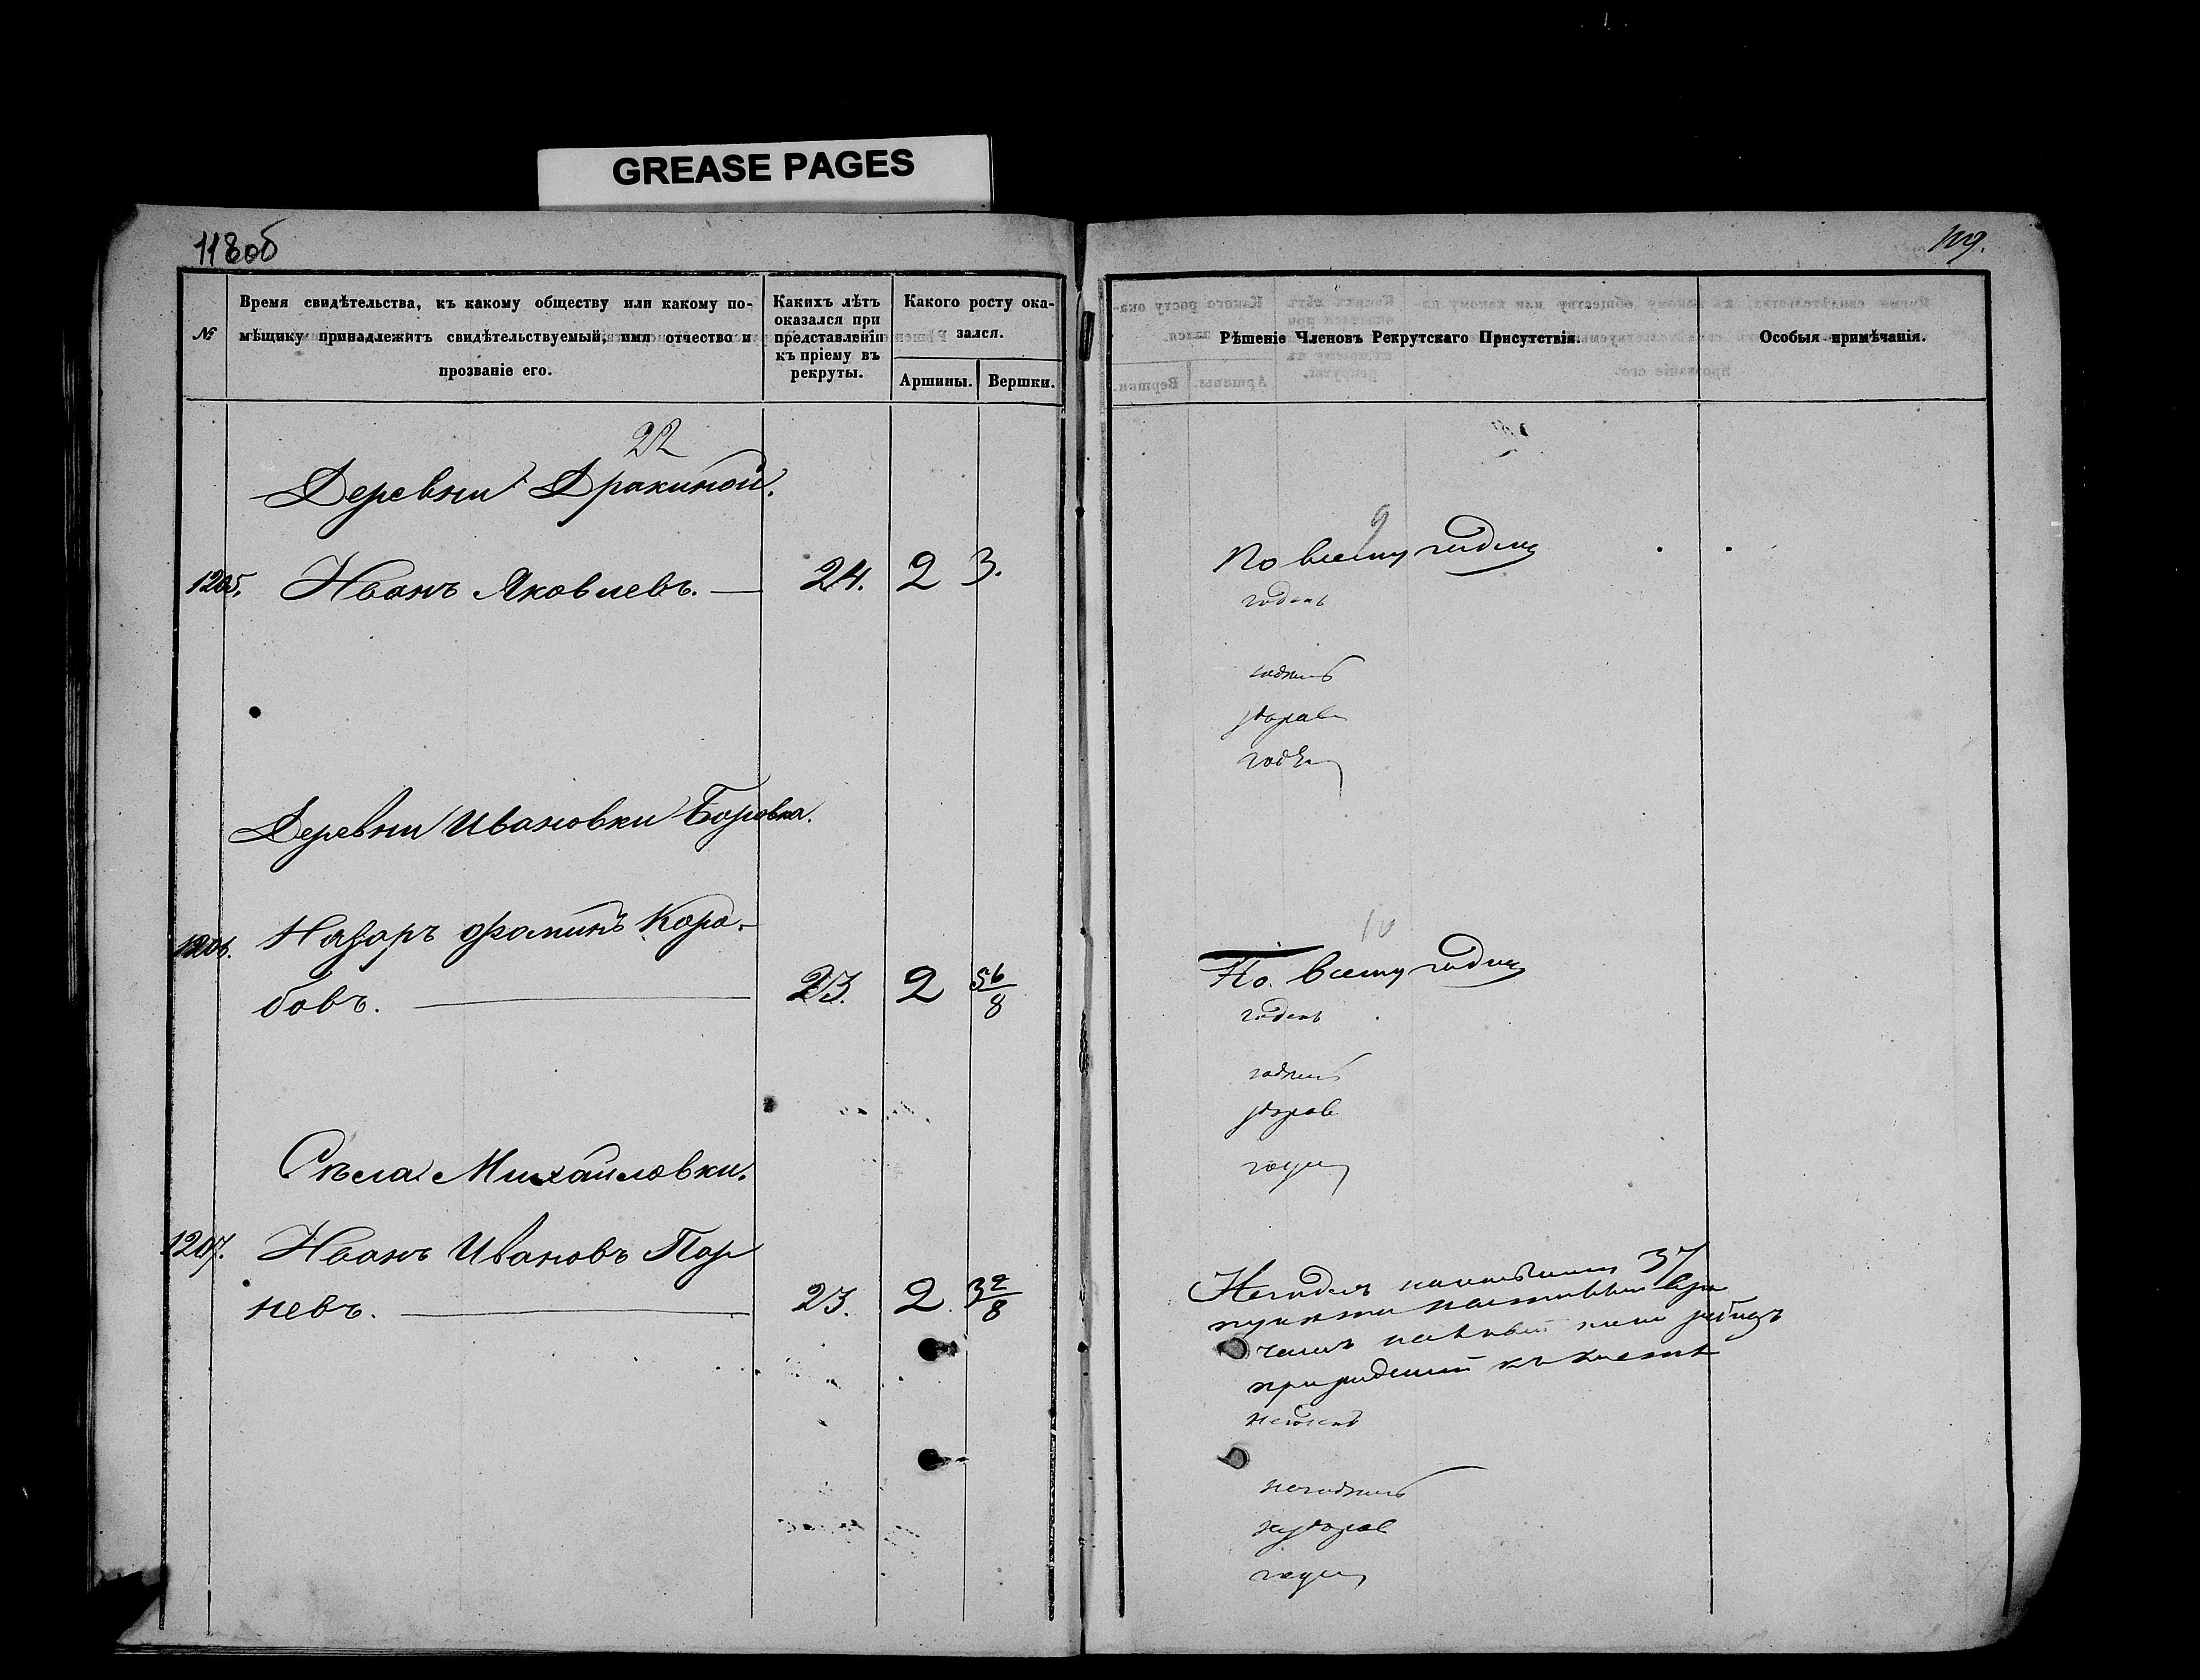 GREASE PAGES
118об
№
Время свидѣтельства, къ какому обществу или какому по-
мѣщику принадлежитъ свидѣтельствуемый, имя отчество и
прозваніе его.
Какихъ лѣтъ
оказался при
представленіи
къ пріему въ
рекруты.
Какого росту ока-
зался.
Аршины.
Вершки.
22
Деревни Дракиной.
1205.
Иванъ Яковлевъ. —
24.
2
3.
Деревни Ивановки Боровка.
1206.
Назаръ Фоминъ Коро-
бовъ.
23.
2
5 6/8
Съела Михайловки.
1207.
Иванъ Ивановъ Пор
невъ.
23.
2.
3 2/8
119.
Рѣшеніе Членовъ Рекрутскаго Присутствія.
Особыя примѣчанія.
9
По всему годенъ
годенъ
годенъ
здоровъ
годенъ
10
По всему годенъ
годенъ
годенъ
здоровъ
Негоденъ 37
пункта
къ
негоденъ
нездоровъ